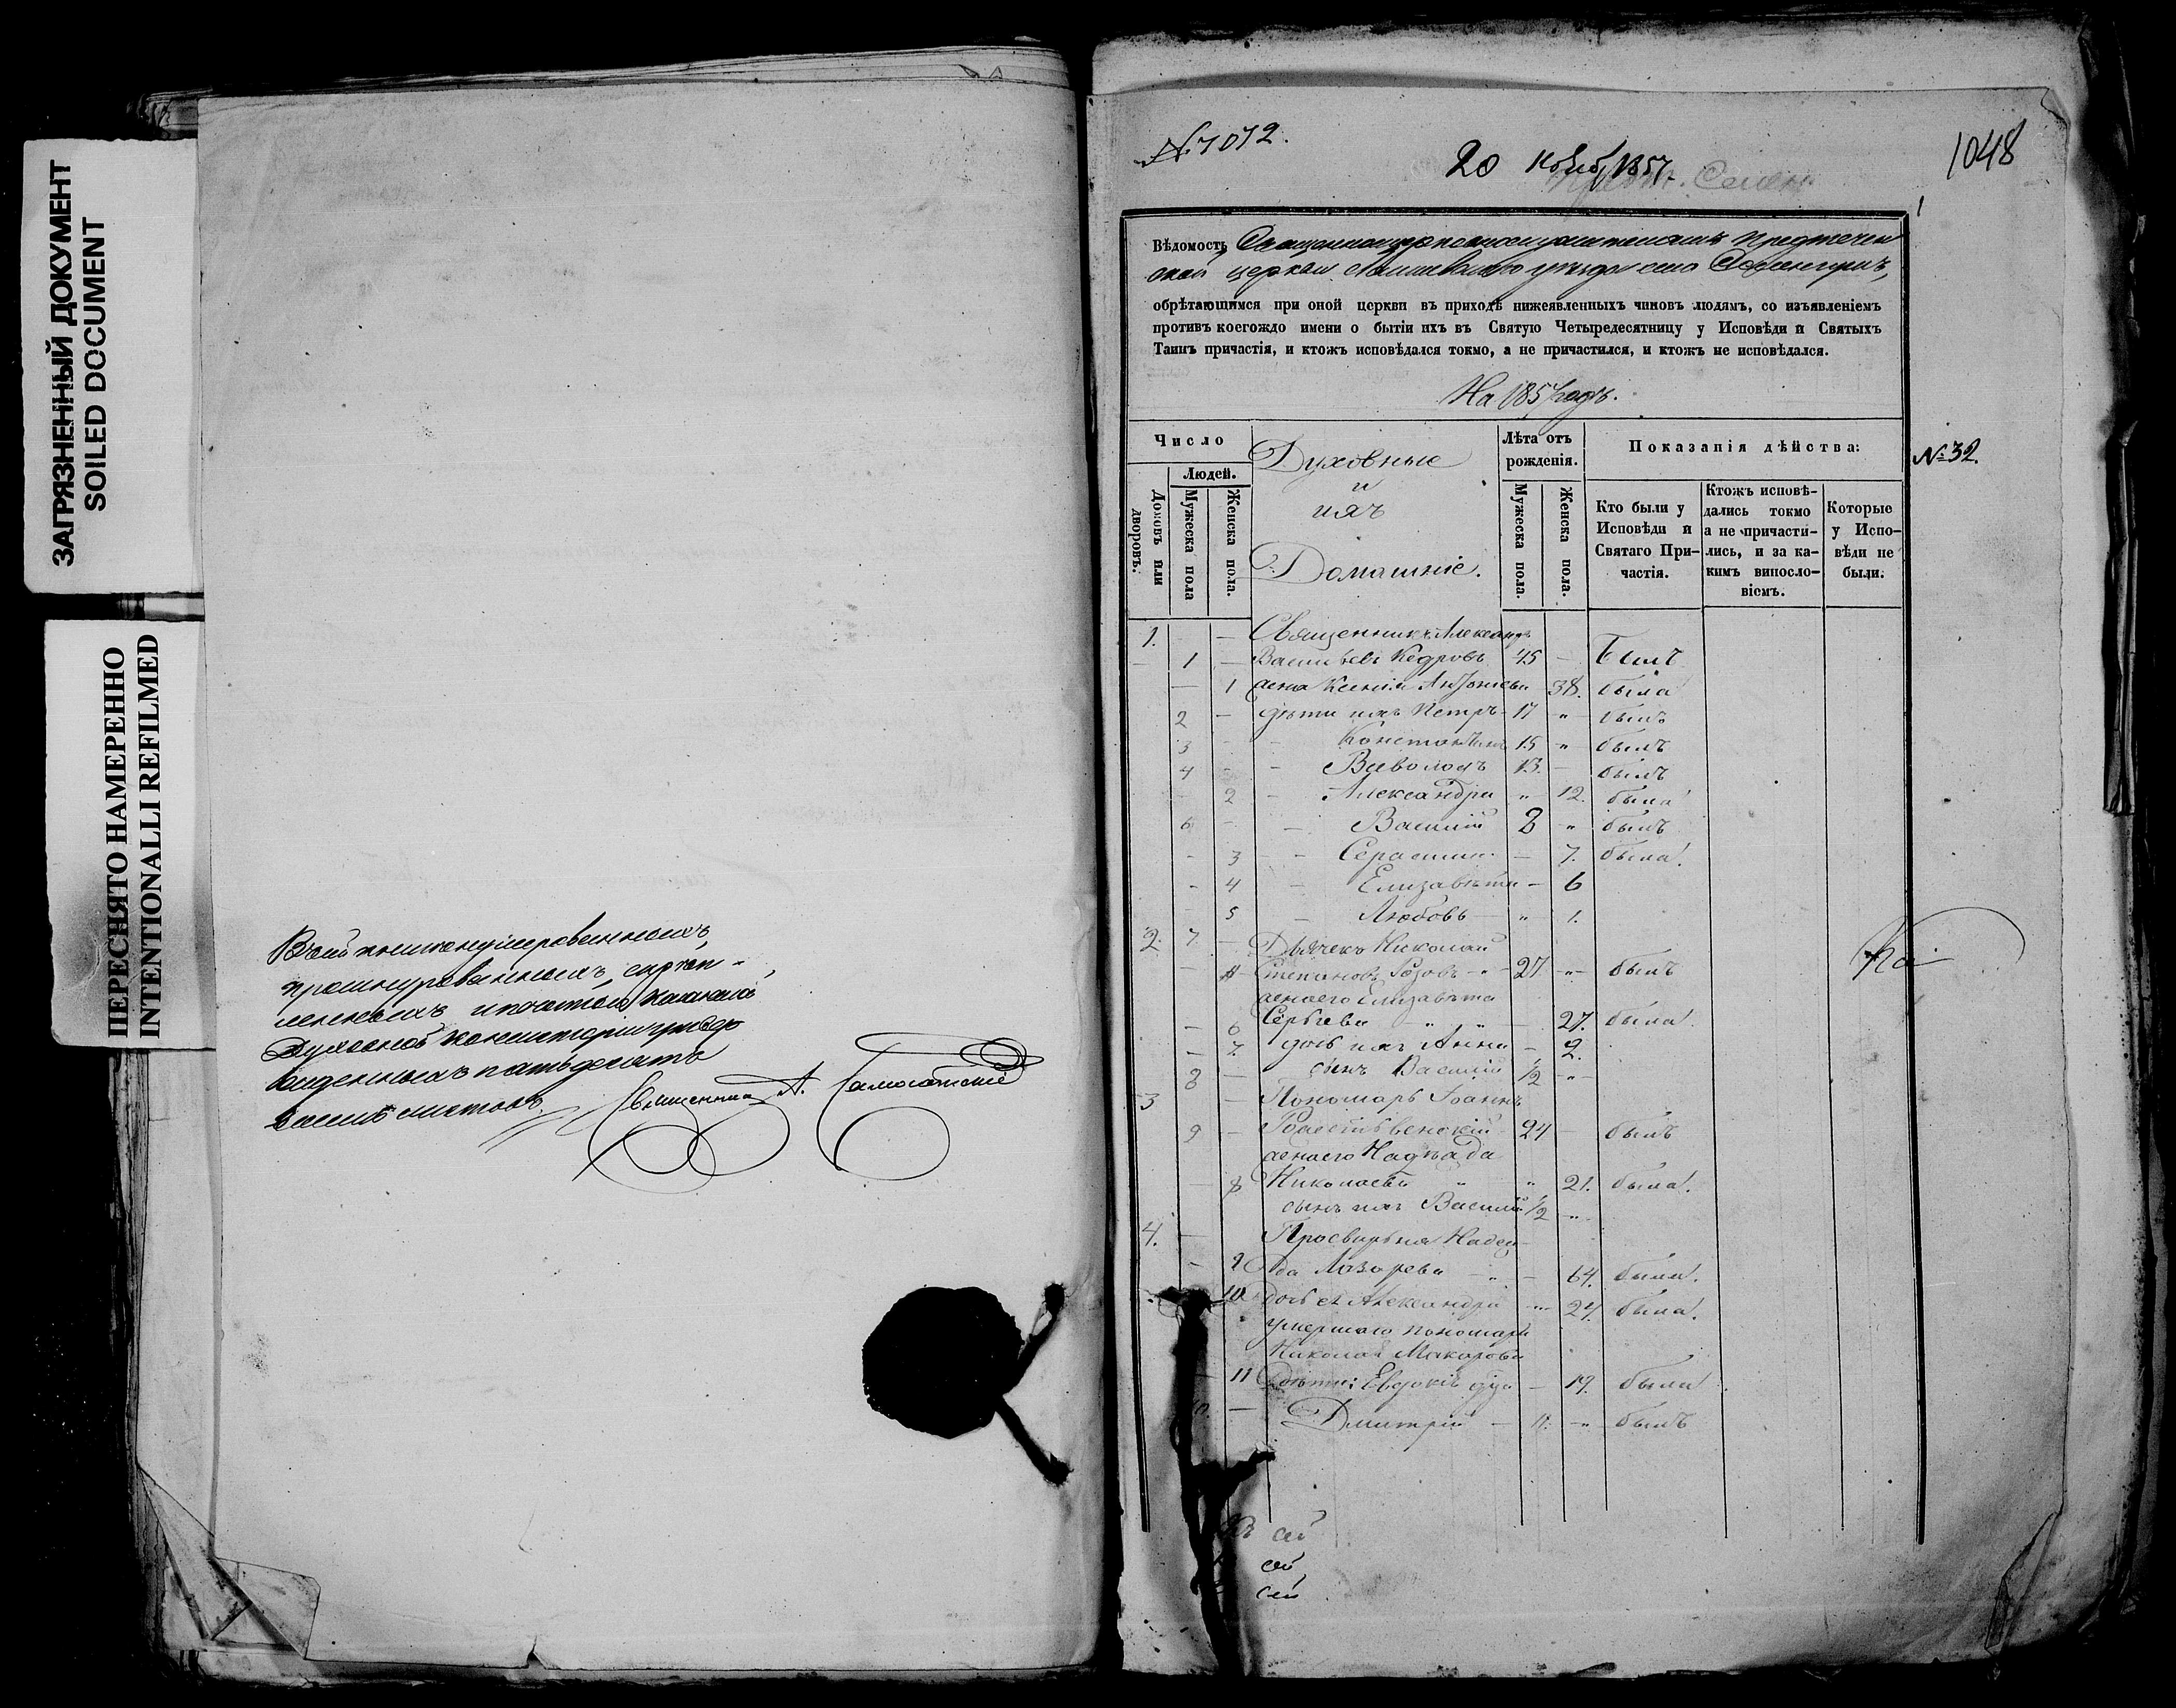 ЗАГРЯЗНЕННЫЙ ДОКУМЕНТ
SOILED DOCUMENT
ПЕРЕСНЯТО НАМЕРЕННО
INTENTIONALLI REFILMED
прошнурованныхъ, скрѣп-
ленныхъ и печатью
Духовной Консисторіи утвер
жденныхъ пятьдесятъ
восемь листовъ.
Священникъ А.
№ 7072.
20 1857.
1048
1
Вѣдомость Предтечен
ской церкви уѣзда села
обрѣтающимся при оной церкви въ приходѣ нижеявленныхъ чиновъ людямъ, со изъявленіемъ
противъ коегождо имени о бытіи ихъ въ Святую Четыредесятницу у Исповѣди и Святыхъ
Таинъ причастія, и ктожъ исповѣдался токмо, а не причастился, и ктожъ не исповѣдался.
На 1857 годъ.
Число
Людей.
Домовъ или дворовъ.
Мужеска пола
Женска пола.
Духовные
и
ихъ
Домашніе.
Лѣта отъ рожденія.
Мужеска пола.
Женска пола.
Показанія дѣйства:
Кто были у Исповѣди и Святаго При-частія.
Ктожъ исповѣ-дались токмо а не причасти-лись, и за ка-кимъ винносло-віемъ.
Которые у Испо-вѣди не были.
№ 32.
1. — Священникъ Александръ
1 — Васильевъ Кедровъ 45 — Былъ
— 1 жена Ксенія 38. была
2 — дѣти ихъ Петръ 17 " былъ
3 - - Константинъ 15 " былъ
4 - - Всеволодъ 13 — былъ
- 2 - Александра " 12. была
6 - - Василій 8 " былъ
- 3 - Серафима — 7. была.
- 4 - Елизавета — 6
- 5 - Любовь " 1.
2. 7. — Дьячекъ Николай
Степановъ Розовъ 27. " былъ
жена его Елизавета
- 6 Сергѣева " " — 27. была.
- 7. дочь ихъ Анна — 2.
8 — сынъ Василій 1/2 "
3 — Пономарь Іоаннъ
9 — Рождественскій 24 — былъ
жена его Надежда
- 8 Николаева " " 21. была.
сынъ ихъ Василій 1/2 "
4. — Просвирня Надеж
- 9 да Лазарева — " — 64. была.
10 дочь ея Александра " 24. была.
умершаго пономаря
Николая Макарова
11 дѣти: Евдокія — 19. была
— Дмитрій — 11. " былъ
Къ сей
сей
сей
Ка